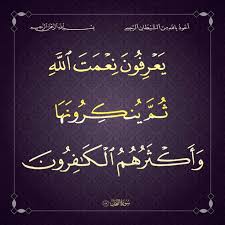 أعوذ بالله من الشيطان الرجيم
بسم الله الرحمن الرحيم
يَعْرِفُونَ نِعْمَتَ ٱللَّهِ
ثُمَّ يُنكِرُونَهَا
وَأَكْثَرُهُمُ ٱلْكَٰفِرُونَ
سورة النحل